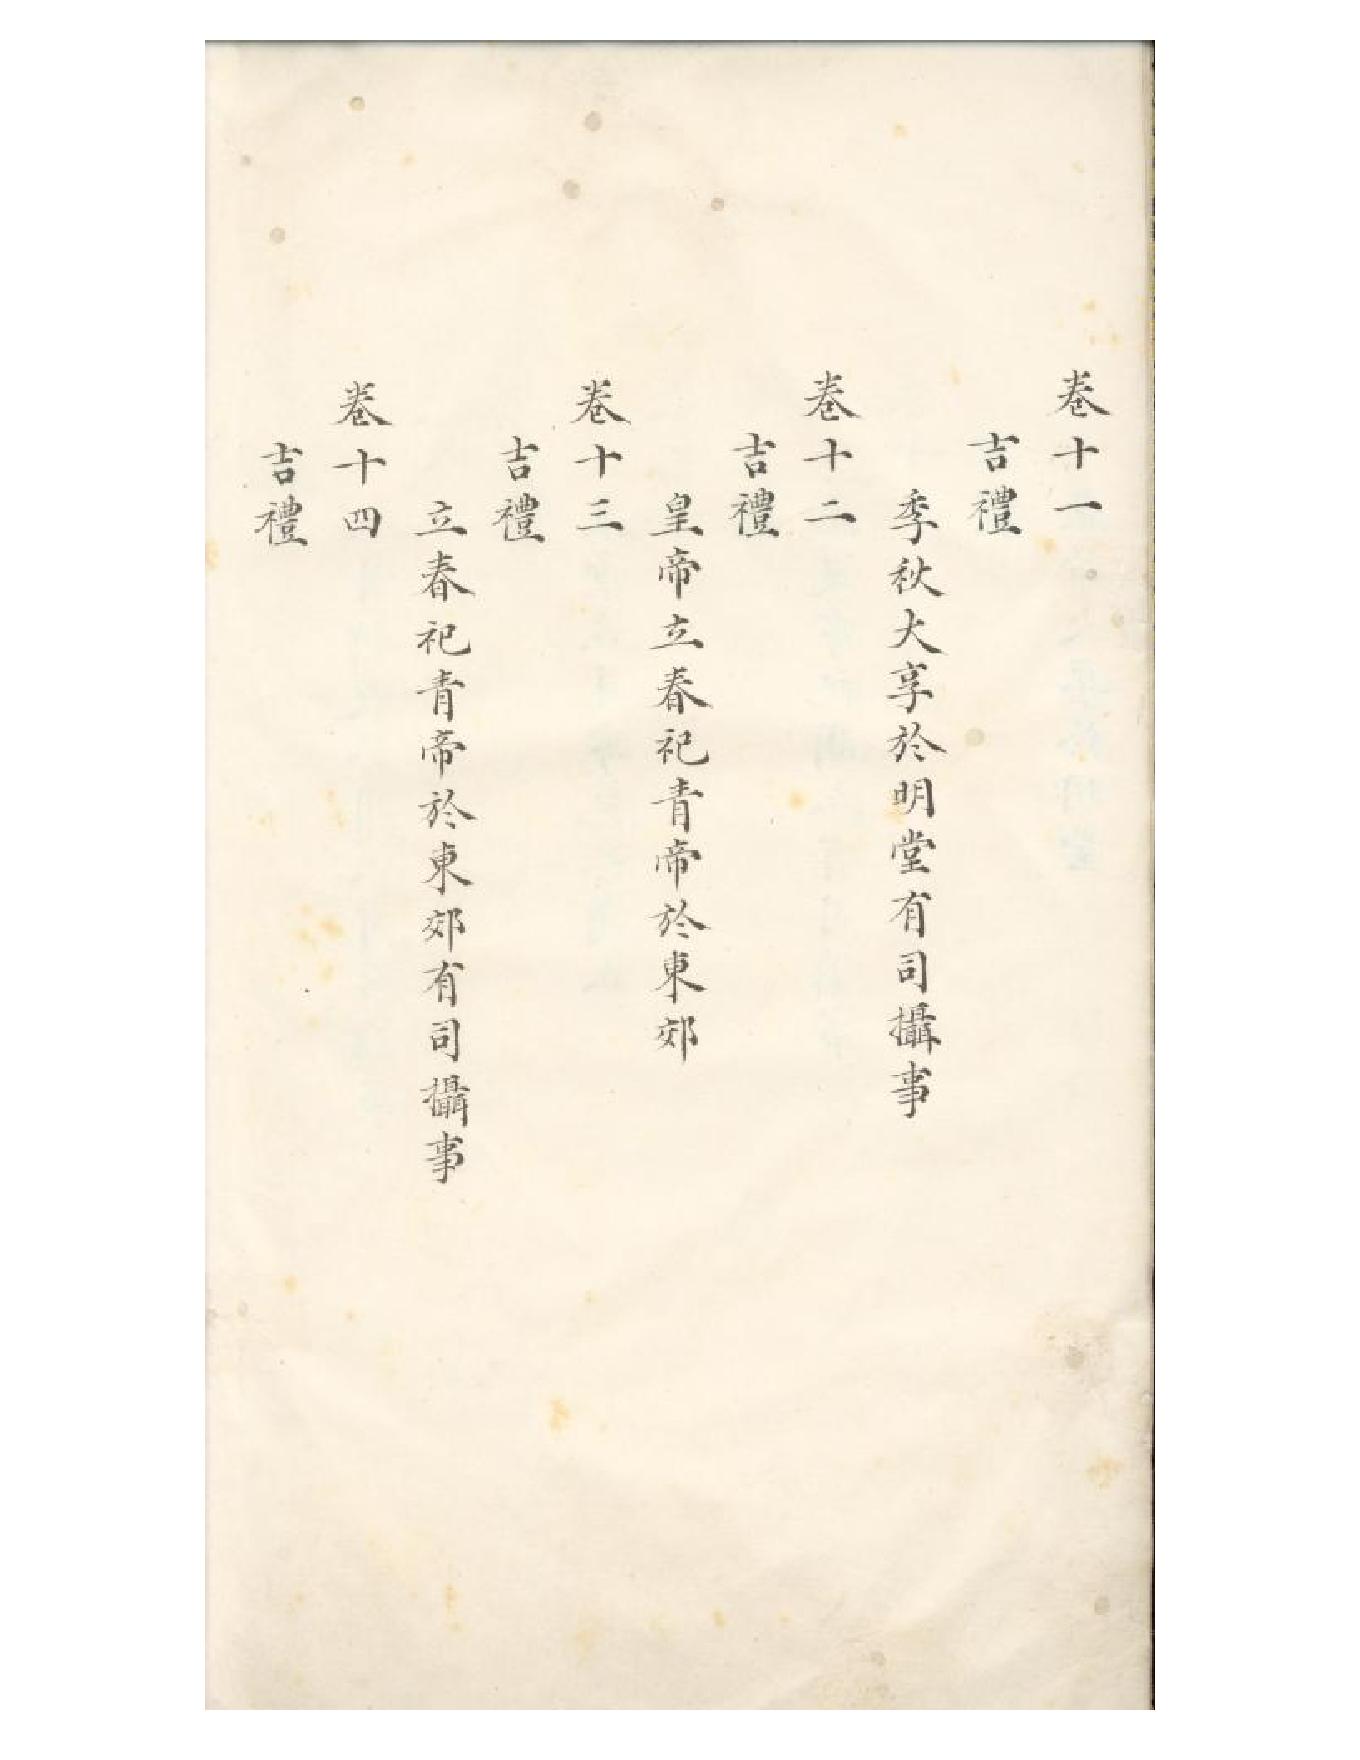 卷十一
吉禮
季秋大享於明堂有司攝事
卷十二
吉禮
皇帝立春祀青帝於東郊
卷十三
吉禮
立春祀青帝於東郊有司攝事
卷十四
吉禮